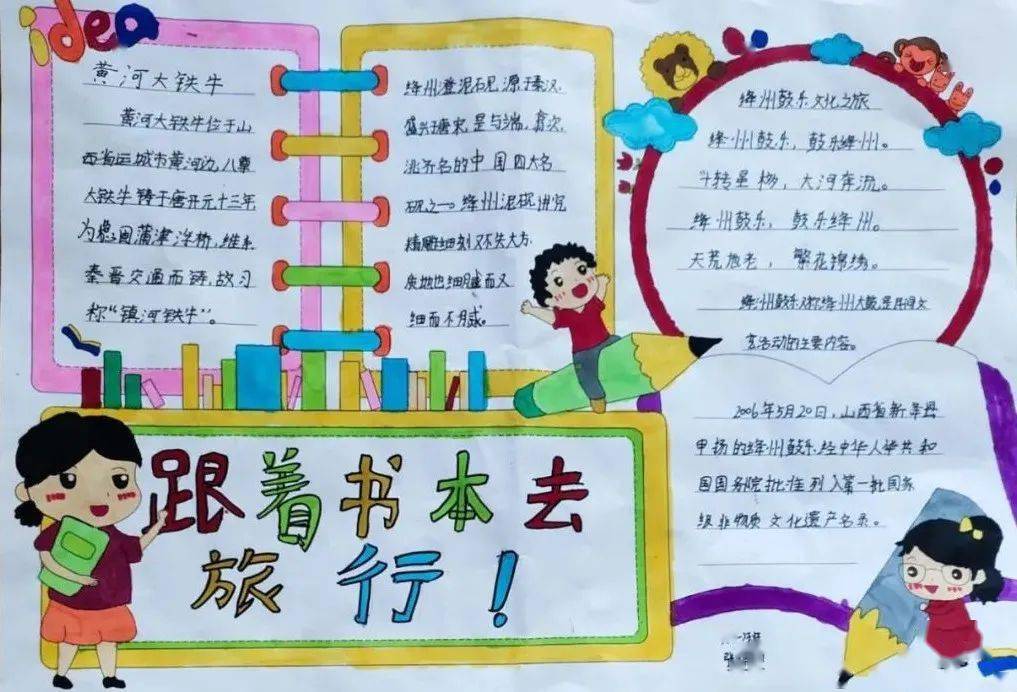 idea
黄河大铁牛
黄河大铁牛位于山
西省运城市黄河边,八尊
大铁牛铸于唐开元十三年
为稳固蒲津浮桥,维系
秦晋交通而铸,故习
称“镇河铁牛”。
绛州澄泥砚源于秦汉,
盛兴于唐宋,是与端、歙、
洮齐名的中国四大名
砚之一。绛州泥砚讲究
精雕细刻又不失大方,
质地也细腻而又
细而不腻。
绛州鼓乐文化之旅
绛州鼓乐,鼓乐绛州。
斗转星移,大河奔流。
绛州鼓乐,鼓乐绛州。
天荒地老,繁花锦绣。
绛州鼓乐又称绛州大鼓,是民间文
竞活动的主要内容。
2006年5月20日,山西省新绛县
申扬的绛州鼓乐经中华人民共和
国国务院批准列入第一批国家
级非物质文化遗产名录。
跟着书本去
旅行!